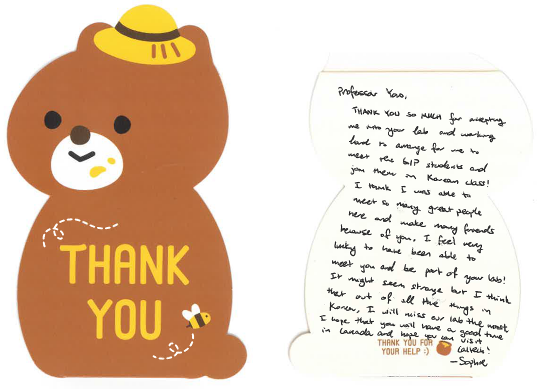 THANK
YOU
Professor Yoo,
THANK YOU SO MUCH for accepting
me into your lab and working
hard to arrange for me to
meet the GIP students and
join them in Korean class!
I think I was able to
meet so many great people
here and make many friends
because of you, I feel very
lucky to have been able to
meet you and be part of your lab!
It might seem strange but I think
that out of all the things in
Korea, I will miss our lab the most
I hope that you will have a good time
in Canada and hope you can visit
THANK YOU FOR
YOUR HELP :)
—Sophie